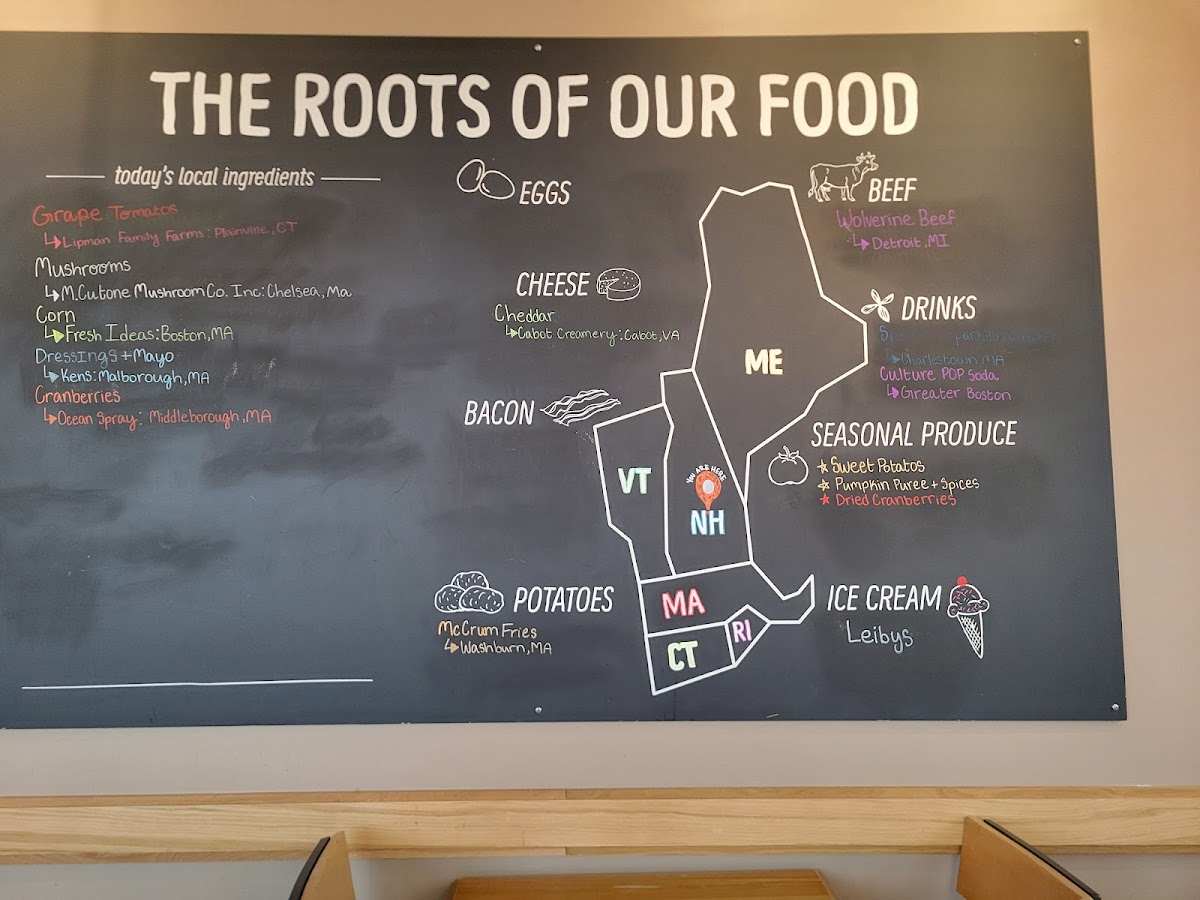 THE ROOTS OF OUR FOOD
today's local ingredients
Grape Tomatos
Lipman Family Farms: Plainville, CT
Mushrooms
M.Cutone Mushroom Co. Inc: Chelsea, Ma
Corn
Fresh Ideas: Boston, MA
Dressings + Mayo
Kens: Malborough, MA
Cranberries
Ocean Spray: Middleborough, MA
EGGS
CHEESE
Cheddar
Cabot Creamery: Cabot, VA
BACON
POTATOES
McCrum Fries
Washburn, MA
ME
VT
YOU ARE HERE
NH
MA
RI
CT
BEEF
Wolverine Beef
Detroit, MI
DRINKS
Charlestown, MA
Culture POP Soda
Greater Boston
SEASONAL PRODUCE
Sweet Potatos
Pumpkin Puree + Spices
Dried Cranberries
ICE CREAM
Leibys